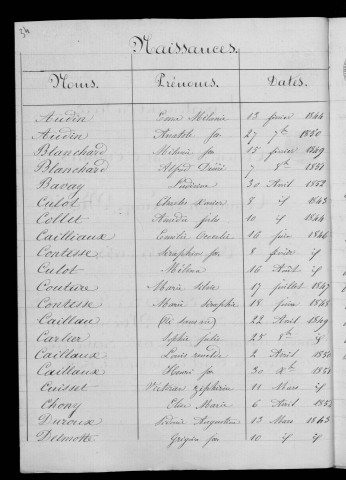 Naissances.
Noms. Prénoms. Dates.
Audin Mélanie 13 février 1844
Audin Anatole fos 27 7bre 1850
Blanchard Mélanie fos 15 février 1849
Blanchard Alfred Désiré 7 8bre 1851
Bavay 30 Avril 1852
Culot Charles Xavier 8 if 1843
Collet Amédée Jules 10 if 1844
Cailliaux Emilie 26 juin 1846
Contesse Séraphine fos 8 février if
Culot Mélina 16 Août if
Couture Marie 17 juillet 1847
Contesse Marie Séraphie 18 juin 1848
Caillau (né sans vie) 22 Avril 1849
Carlier Sophie Julie 28 8bre if
Caillaux Louis 2 Avril 1850
Caillaux Henri fos 30 Xbre 1851
Cuisset Victorien Zéphirin 11 Mars if
Chony Elise Marie 6 Avril 1852
Duroux Augustin 13 Mars 1843
Delmotte fos 10 if if